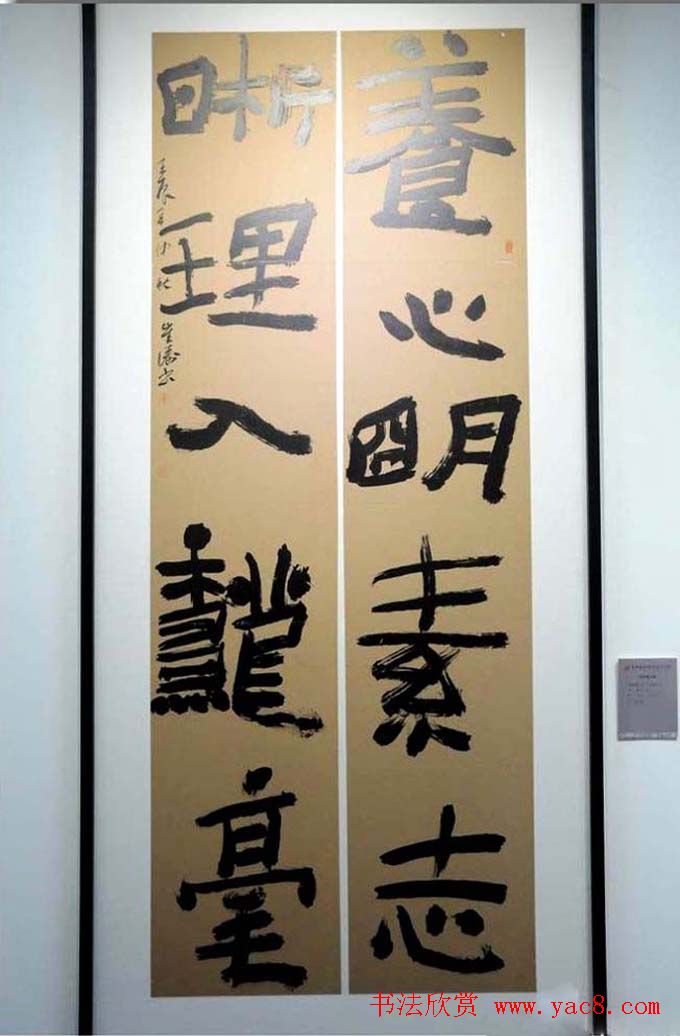 養心朙素志
晰理入龝毫
壬辰年仲秋
书法欣赏 www.yac8.com